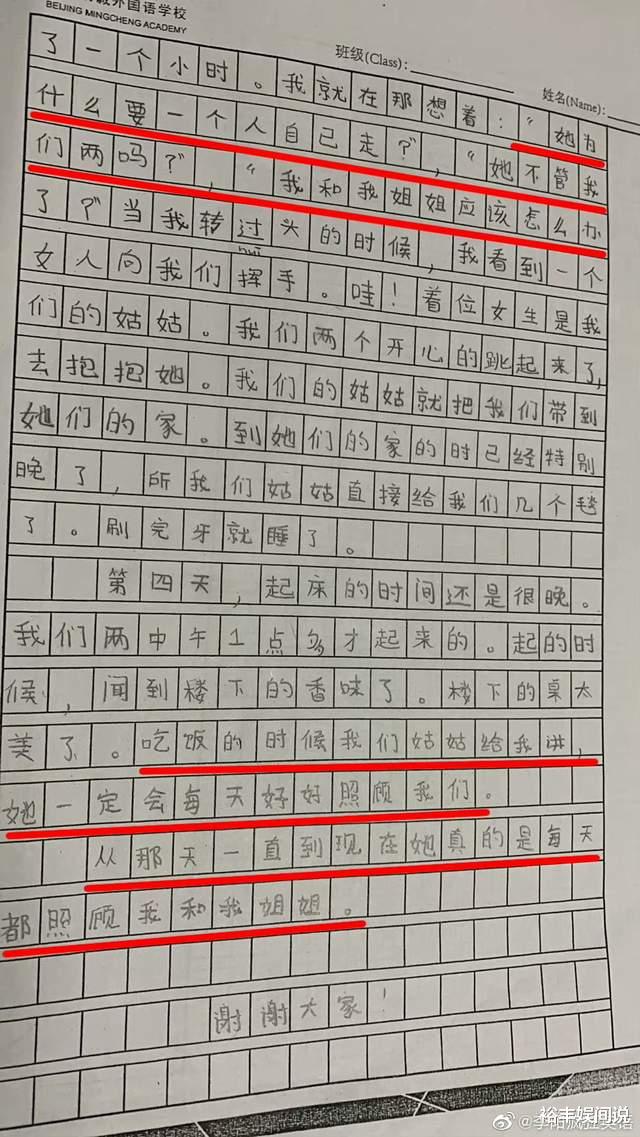 外国语学校
BEIJING MINGCHENG ACADEMY
班级(Class):
姓名(Name):
了一个小时。我就在那想着:“她为
什么要一个人自己走?”,“她不管我
们两吗?”,“我和我姐姐应该怎么办
了?”当我转过头的时候,我看到一个
女人向我们挥手。哇!着位女生是我
们的姑姑。我们两个开心的跳起来了,
去抱抱她。我们的姑姑就把我们带到
她们的家。到她们的家的时已经特别
晚了,所我们姑姑直接给我们几个毯
了。刷完牙就睡了。
第四天,起床的时间还是很晚。
我们两中午1点多才起来的。起的时
候,闻到楼下的香味了。楼下的桌太
美了。吃饭的时候我们姑姑给我讲,
她一定会每天好好照顾我们。
从那天一直到现在她真的是每天
都照顾我和我姐姐。
谢谢大家!
@李阳疯狂英语
裕丰娱间说